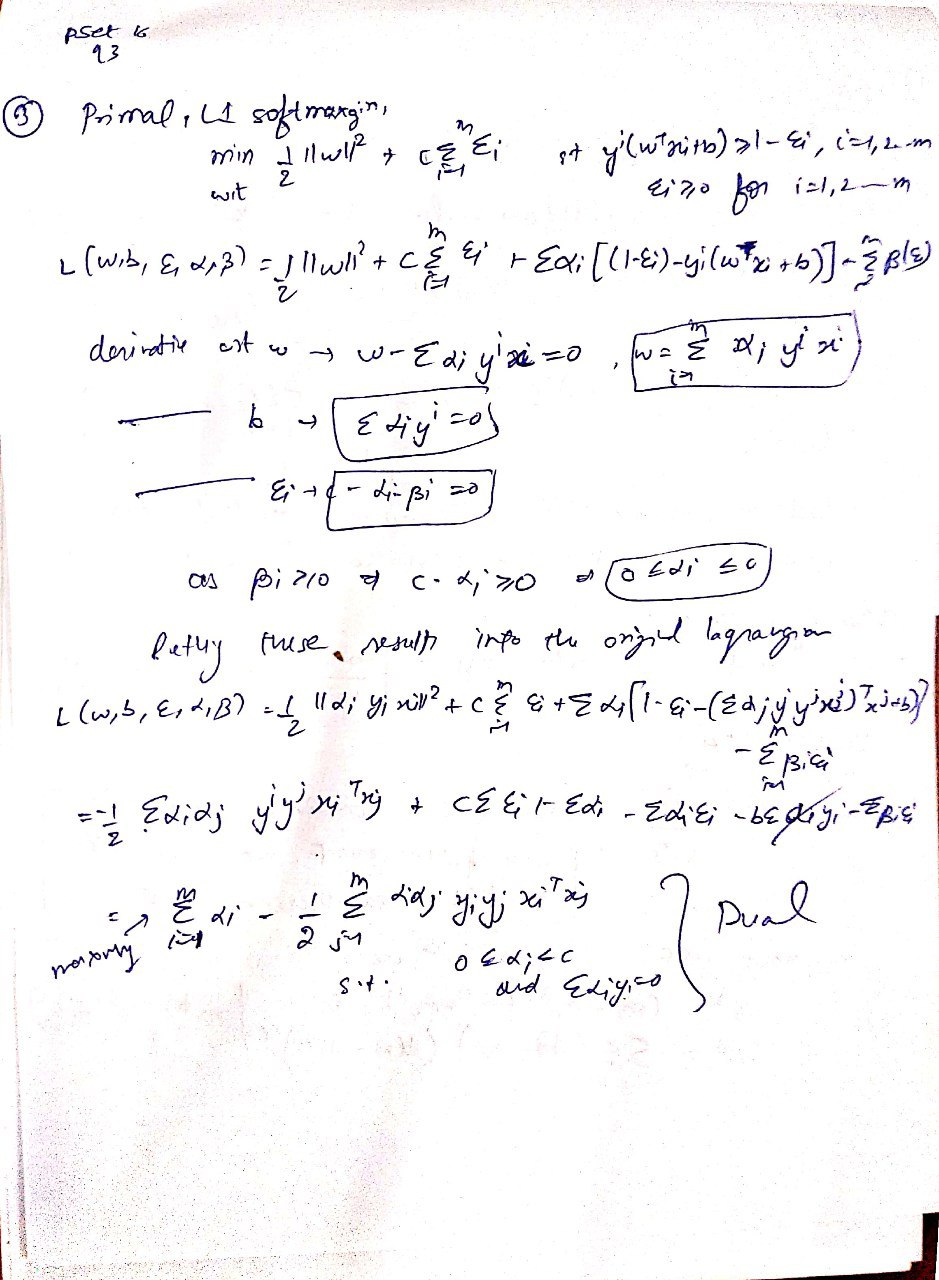 pset 16
q3
③ Primal, L1 softmargin,
min 1/2 ||w||² + C Σ_{i=1}^m ξi st y^i(w^T xi+b) ≥ 1-ξi, i=1,2--m
w.r.t ξi ≥ 0 for i=1,2--m
L(w,b, ξ, α,β) = 1/2 ||w||² + C Σ_{i=1}^m ξi + Σαi [(1-ξi)-yi(w^T xi +b)] - Σ^m β(ξ)
derivative wrt w → w - Σ αi y^i xi = 0 , w = Σ_{i=1}^m αi y^i xi
—— b → Σ αi y^i = 0
—— ξi → C - αi - βi = 0
as βi ≥ 0 ⇒ C - αi ≥ 0 ⇒ 0 ≤ αi ≤ C
these results into the original lagrangian
L(w,b, ξ, α,β) = 1/2 ||αi yi xi||² + C Σ_{i=1}^m ξi + Σ αi [1-ξi-(Σ αj y^j y^j x^j)^T x^j+b)]
- Σ_{i=1}^m βi ξi
= -1/2 Σ αi αj y^i y^j xi^T xj + C Σ ξi + Σ αi - Σ αi ξi - b Σ αi yi - Σ βi ξi
= → Σ_{i=1}^m αi - 1/2 Σ_{j=1}^m αi αj yi yj xi^T xj } Dual
s.t. 0 ≤ αi ≤ C
and Σ αi yi = 0